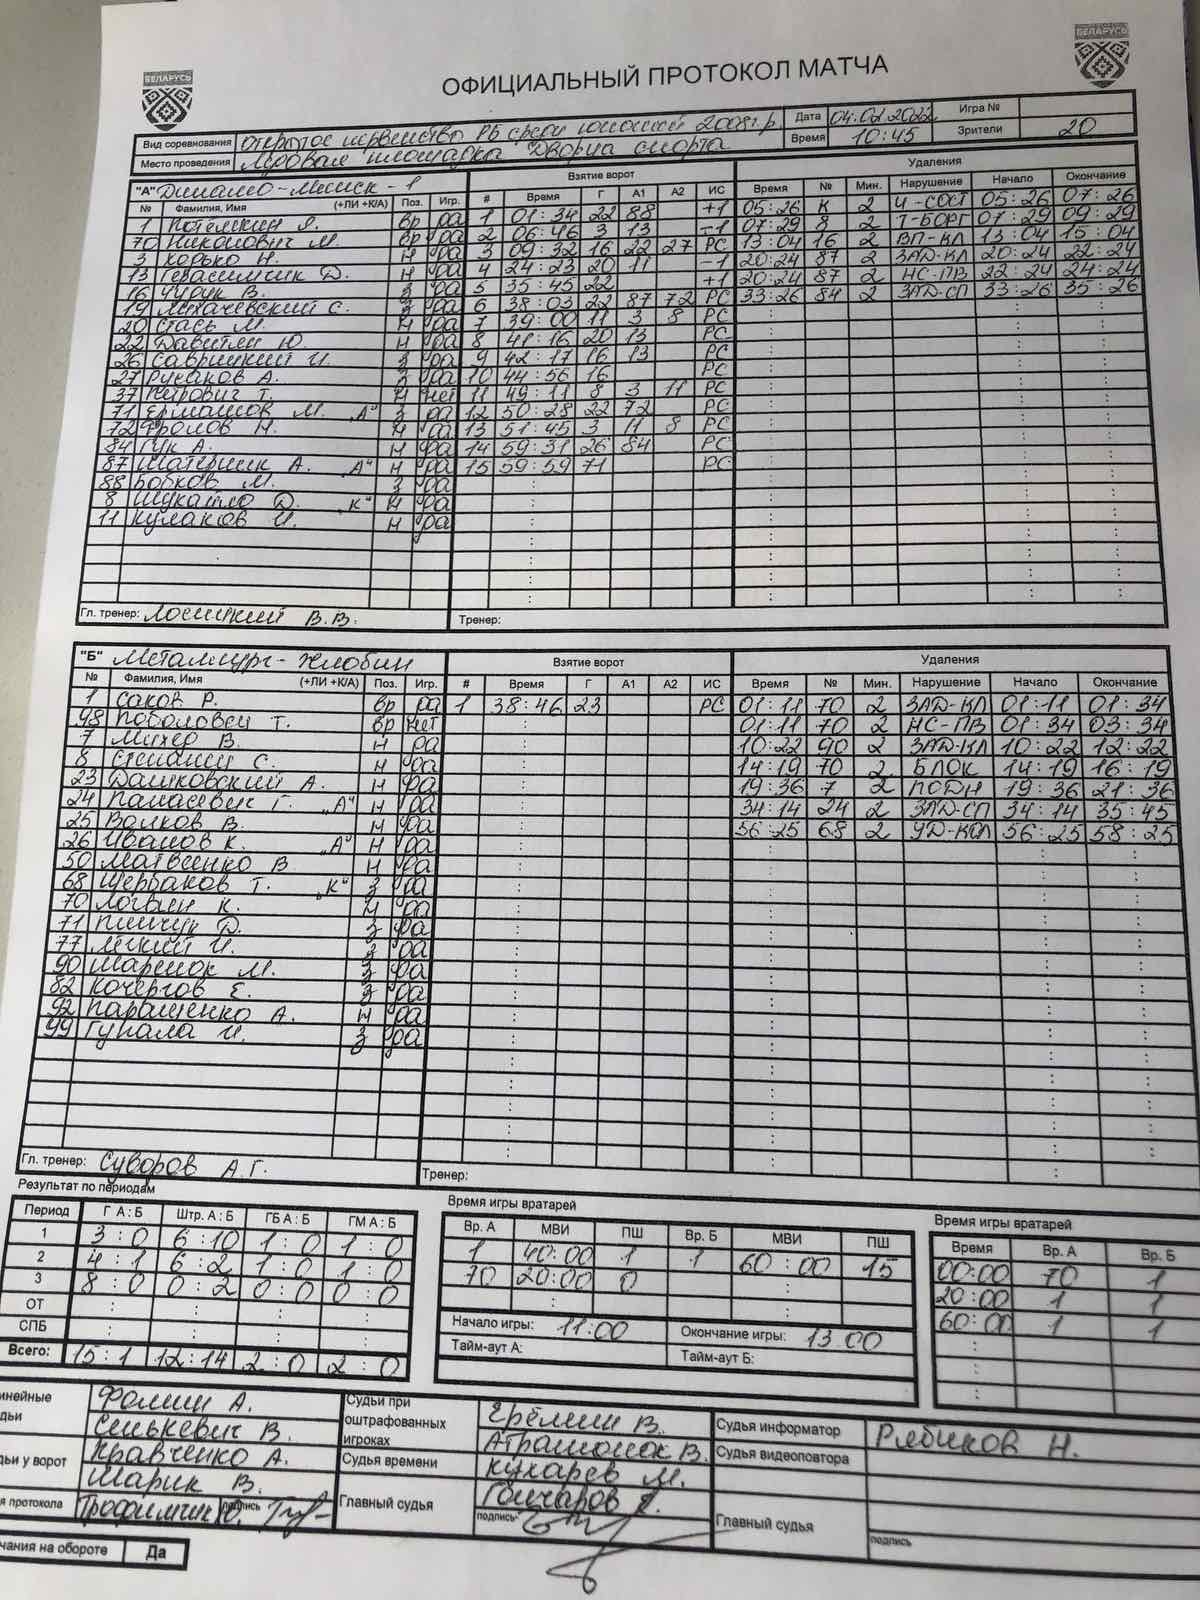 БЕЛАРУСЬ
БЕЛАРУСЬ
ОФИЦИАЛЬНЫЙ ПРОТОКОЛ МАТЧА
Вид соревнования Открытое первенство РБ среди юношей 2008 г.р. Дата 04.02.2022 Игра №
Место проведения Ледовая площадка Дворца спорта Время 10:45 Зрители 20
"А" Динамо-Минск-1 Взятие ворот Удаления
№ Фамилия, Имя (+ЛИ +К/А) Поз. Игр. # Время Г А1 А2 ИС Время № Мин. Нарушение Начало Окончание
1 Потёмкин Я. вр да 1 01:34 22 88 +1 05:26 К 2 Ч-СОСТ 05:26 07:26
70 Никонович М. вр да 2 06:46 3 13 -1 07:29 8 2 Т-БОРТ 07:29 09:29
3 Хорько Н. н да 3 09:32 16 22 27 РС 13:04 16 2 ВП-КЛ 13:04 15:04
13 Герасимчик Д. н да 4 24:23 20 11 -1 20:24 87 2 ЗАД-КЛ 20:24 22:24
16 Чурук В. з да 5 35:45 22 +1 20:24 87 2 НС-ПВ 22:24 24:24
19 Михачевский С. з да 6 38:03 22 87 72 РС 33:26 84 2 ЗАД-СП 33:26 35:26
20 Стась М. н да 7 39:00 11 3 8 РС
22 Давитли Ю. н да 8 41:16 20 13 РС
26 Саврицкий И. з да 9 42:17 16 13 РС
27 Русаков А. з да 10 44:56 16 РС
37 Петрович Т. н нет 11 49:11 8 3 11 РС
71 Ермашов М. "А" з да 12 50:28 22 72 РС
72 Фролов Н. н да 13 51:45 3 11 8 РС
84 Гук А. н да 14 59:31 26 84 РС
87 Шатерник А. "А" н да 15 59:59 71 РС
88 Бобков М. з да
8 Шукайло Д. "К" н да
11 Кулаков И. н да
Гл. тренер: Лосицкий В.В. Тренер:
"Б" Металлург-Жлобин Взятие ворот Удаления
№ Фамилия, Имя (+ЛИ +К/А) Поз. Игр. # Время Г А1 А2 ИС Время № Мин. Нарушение Начало Окончание
1 Саков Р. вр да 1 38:46 23 РС 01:11 70 2 ЗАД-КЛ 01:11 01:34
98 Поболовец Т. вр нет 01:11 70 2 НС-ПВ 01:34 03:34
7 Михео В. н да 10:22 90 2 ЗАД-КЛ 10:22 12:22
8 С. н да 14:19 70 2 БЛОК 14:19 16:19
23 Дашковский А. н да 19:36 7 2 ПОДН 19:36 21:36
24 Панасевич Г. "А" н да 34:14 24 2 ЗАД-СП 34:14 35:45
25 Волков В. н да 56:25 68 2 УД-КОЛ 56:25 58:25
26 Иванов К. "А" н да
50 Матвеенко В н да
68 Щербаков Т. "К" з да
70 Логвин К. н да
71 Пинчук Д. з да
77 Микий И. з да
90 Марченок М. з да
82 Кочергов Е. з да
92 Паращенко А. н да
99 Гупала И. з да
Гл. тренер: Суворов А.Г. Тренер:
Результат по периодам Время игры вратарей Время игры вратарей
Период Г А : Б Штр. А : Б ГБ А : Б ГМ А : Б Вр. А МВИ ПШ Вр. Б МВИ ПШ Время Вр. А Вр. Б
1 3:0 6:10 1:0 1:0 1 40:00 1 1 60:00 15 00:00 70 1
2 4:1 6:2 1:0 1:0 70 20:00 0 20:00 1 1
3 8:0 0:2 0:0 0:0 60:00 1 1
ОТ
СПБ Начало игры: 11:00 Окончание игры: 13.00
Всего: 15:1 12:14 2:0 2:0 Тайм-аут А: Тайм-аут Б:
инейные дьи Фомин А. Сенькевич В.
Судьи при оштрафованных игроках Ерёмин В. Атрашонок В.
Судья информатор Рябиков Н.
Судья видеоповтора
дьи у ворот Кравченко А. Шарик В.
Судья времени Кухарев М.
я протокола Трофимчик Ю. подпись
Главный судья Гончаров подпись
Главный судья подпись
чания на обороте Да